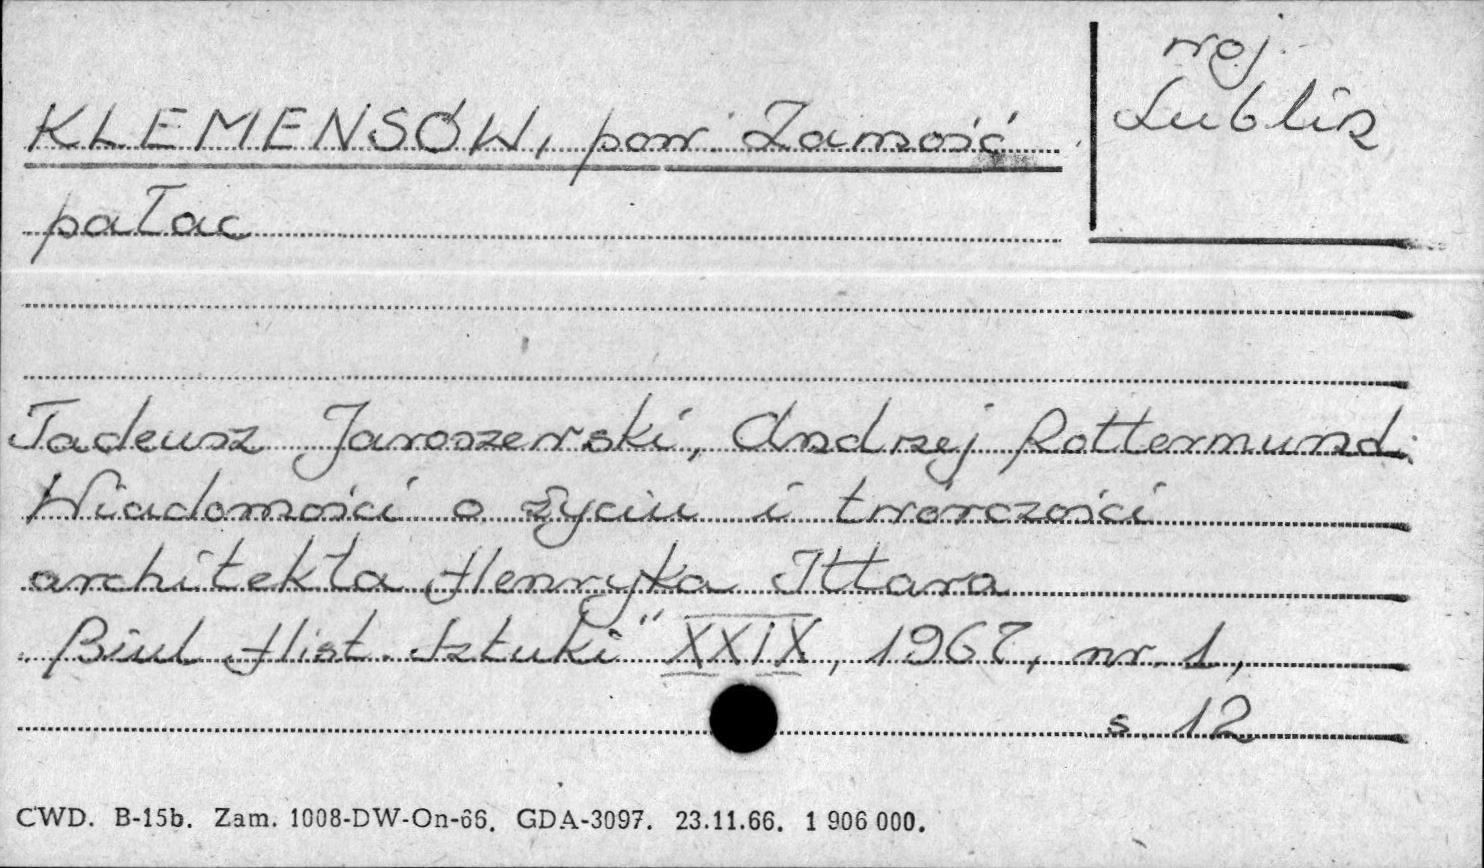 woj.
Lublin
KLEMENSÓW, pow. Zamość
pałac
Tadeusz Jaroszewski, Andrzej Rottermund:
Wiadomości o życiu i twórczości
architekta Henryka Ittara
„Biul. Hist. Sztuki" XXIX, 1967, nr. 1,
s. 12
CWD. B-15b. Zam. 1008-DW-On-66. GDA-3097. 23.11.66. 1 906 000.